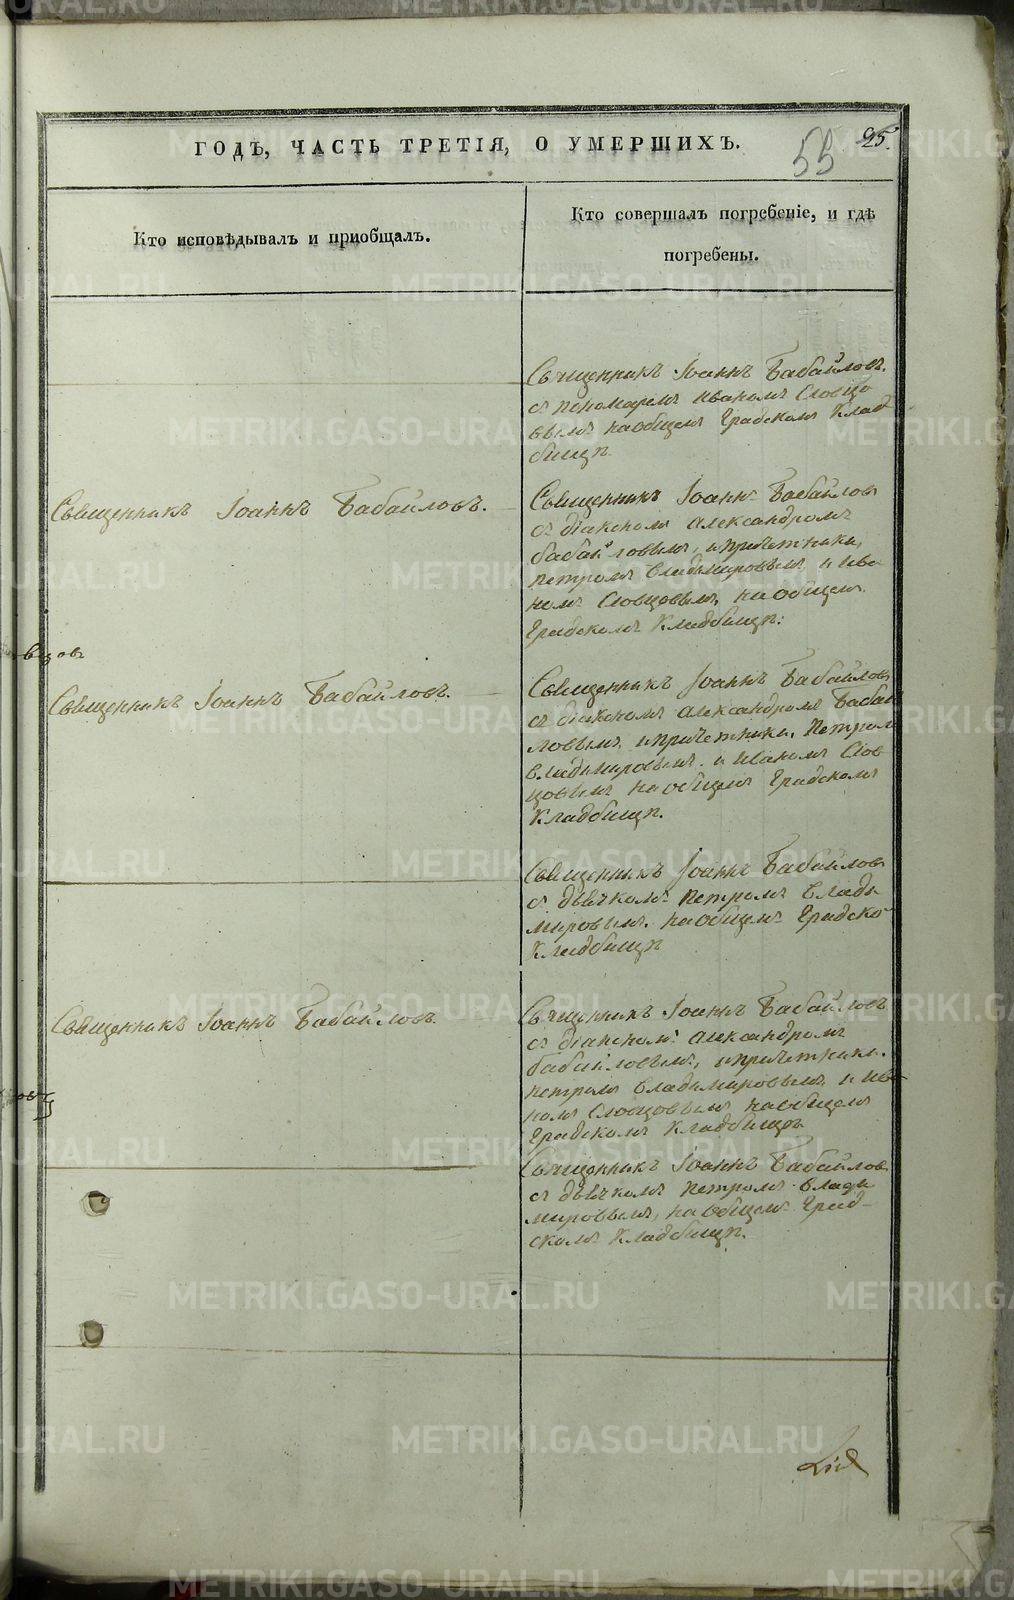 ГОДЪ, ЧАСТЬ ТРЕТІЯ, О УМЕРШИХЪ.
55 25.
Кто исповѣдывалъ и пріобщалъ.
Кто совершалъ погребеніе, и гдѣ
погребены.
Священникъ Іоаннъ Бабайловъ.
съ пономаремъ Иваномъ Словцо
вымъ на общемъ Градскомъ Клад
бищѣ
Священникъ Іоаннъ Бабайловъ.
Священникъ Іоаннъ Бабайловъ
съ діакономъ Александромъ
Бабайловымъ, и причетники,
Петромъ Владимировымъ, и Ива
номъ Словцовымъ, на общемъ
Градскомъ Кладбищѣ.
Священникъ Іоаннъ Бабайловъ.
Священникъ Іоаннъ Бабайловъ
съ діакономъ Александромъ Бабай
ловымъ, и причетники, Петромъ
Владимировымъ, и Иваномъ Слов
цовымъ на общемъ Градскомъ
Кладбищѣ.
Священникъ Іоаннъ Бабайловъ
съ дьячкомъ Петромъ Влади
мировымъ, на общемъ Градско
Кладбищѣ
Священникъ Іоаннъ Бабайловъ.
Священникъ Іоаннъ Бабайловъ
съ діакономъ Александромъ
Бабайловымъ, и причетники,
Петромъ Владимировымъ, и Ива
номъ Словцовымъ на общемъ
Градскомъ Кладбищѣ
Священникъ Іоаннъ Бабайловъ
съ дьячкомъ Петромъ Влади
мировымъ, на общемъ Град-
скомъ Кладбищѣ.
METRIKI.GASO-URAL.RU